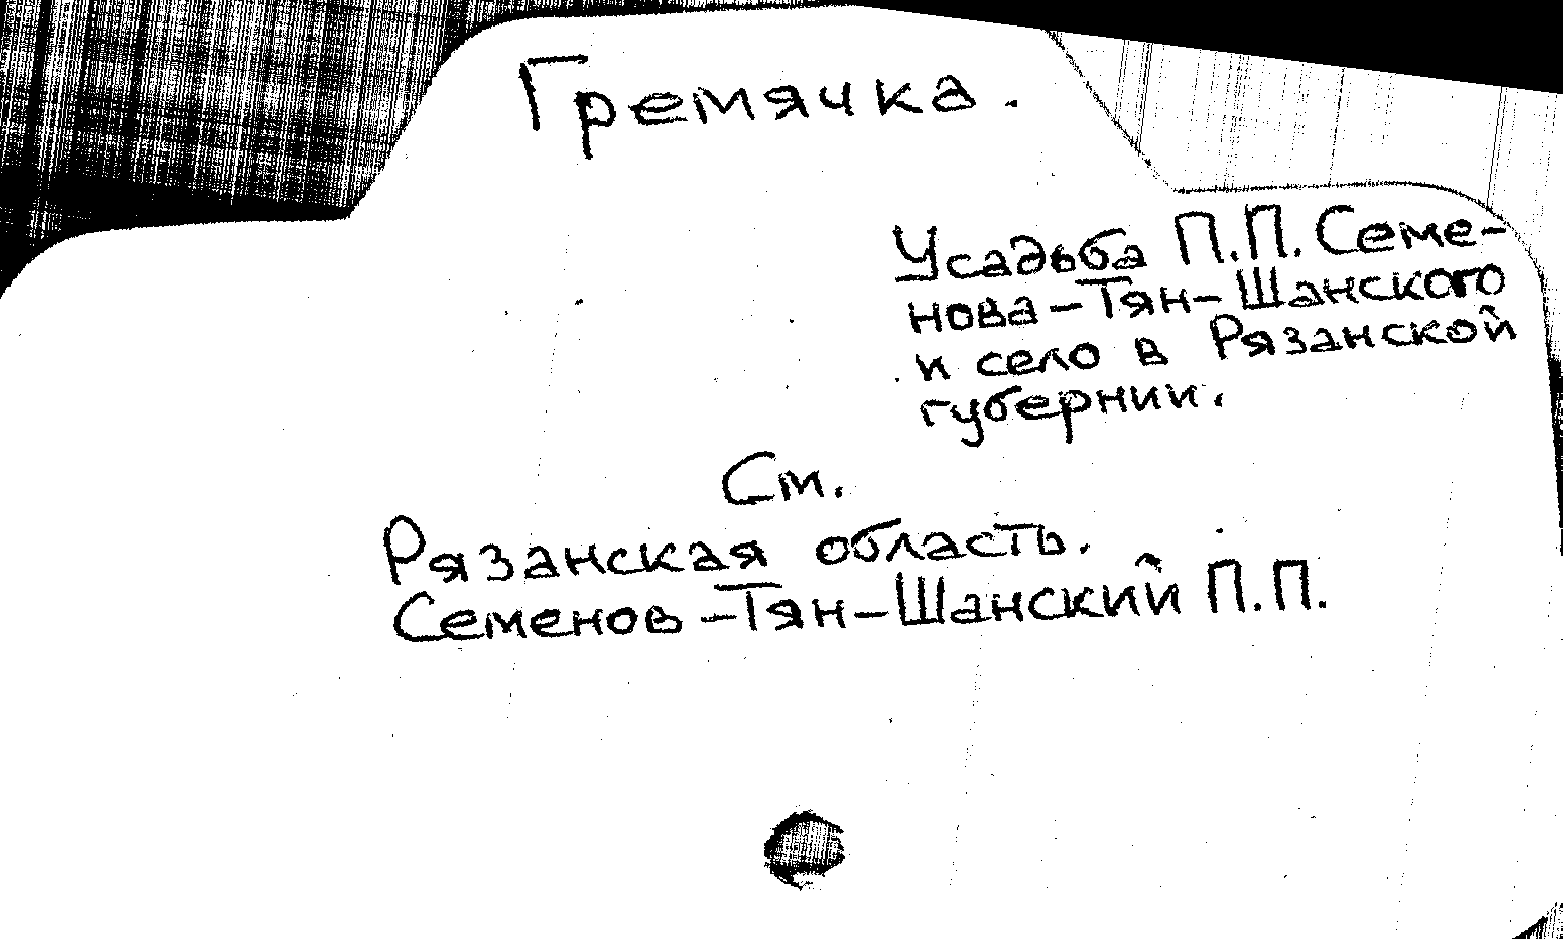 Гремячка.
Усадьба П.П. Семе-
нова-Тян-Шанского
и село в Рязанской
губернии.
См.
Рязанская область.
Семенов-Тян-Шанский П.П.